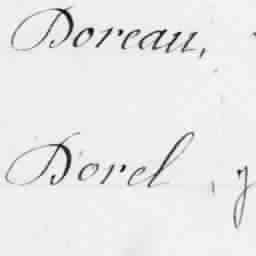 Doreau,
Dorel,